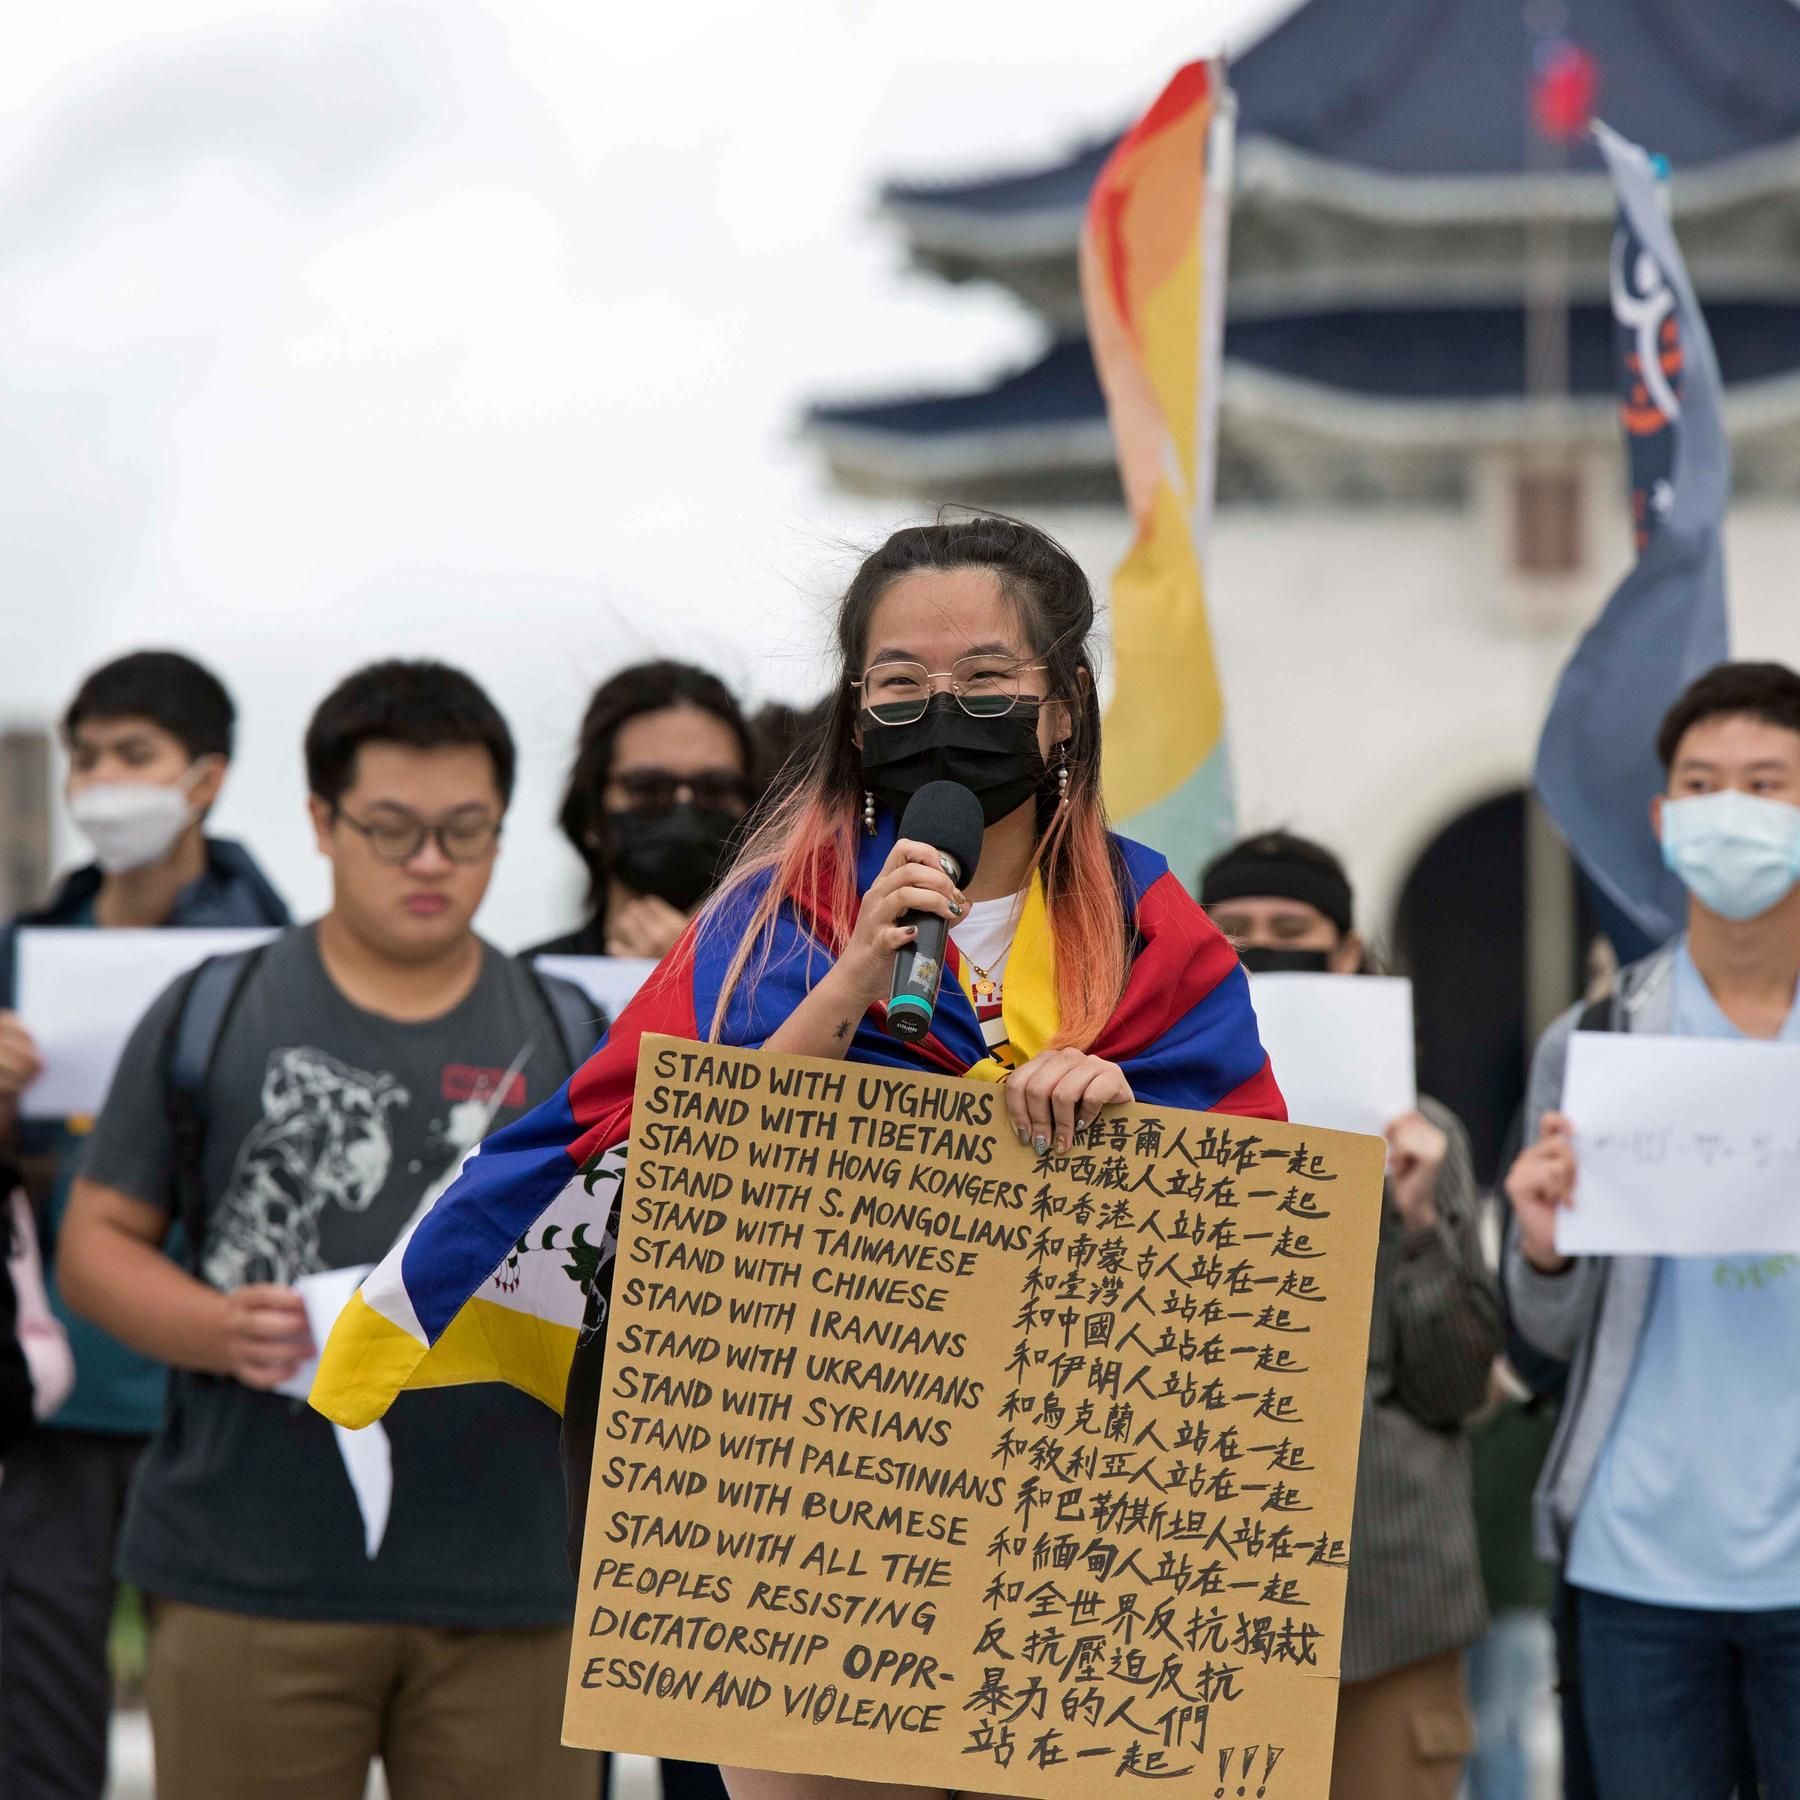 STAND WITH UYGHURS
STAND WITH TIBETANS
STAND WITH HONG KONGERS
STAND WITH S. MONGOLIANS
STAND WITH TAIWANESE
STAND WITH CHINESE
STAND WITH IRANIANS
STAND WITH UKRAINIANS
STAND WITH SYRIANS
STAND WITH PALESTINIANS
STAND WITH BURMESE
STAND WITH ALL THE
PEOPLES RESISTING
DICTATORSHIP OPPR-
ESSION AND VIOLENCE
維吾爾人站在一起
和西藏人站在一起
和香港人站在一起
和南蒙古人站在一起
和臺灣人站在一起
和中國人站在一起
和伊朗人站在一起
和烏克蘭人站在一起
和敘利亞人站在一起
和巴勒斯坦人站在一起
和緬甸人站在一起
和全世界反抗獨裁
反抗壓迫反抗
暴力的人們
站在一起!!!